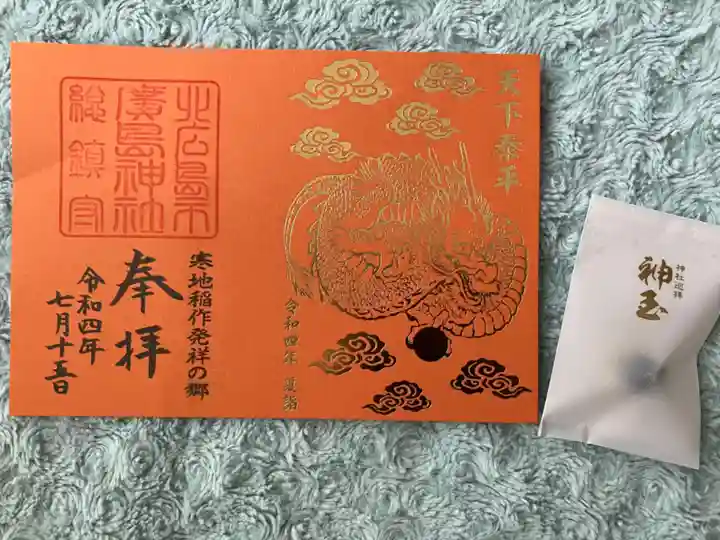 天下泰平
令和四年 夏詣
北広島市
廣島神社
総鎮守
寒地稲作発祥の郷
奉拝
令和四年
七月十五日
神社巡拝
神玉